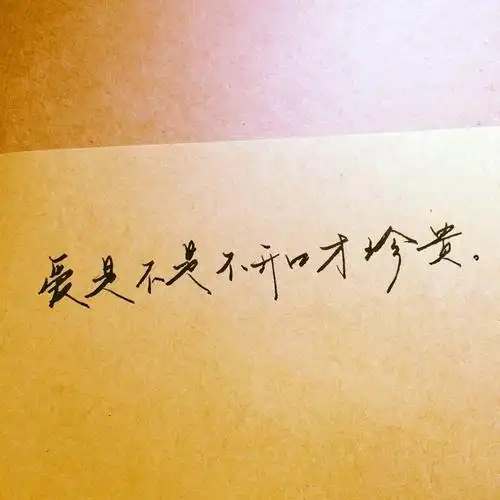 爱是不是不开口才珍贵。